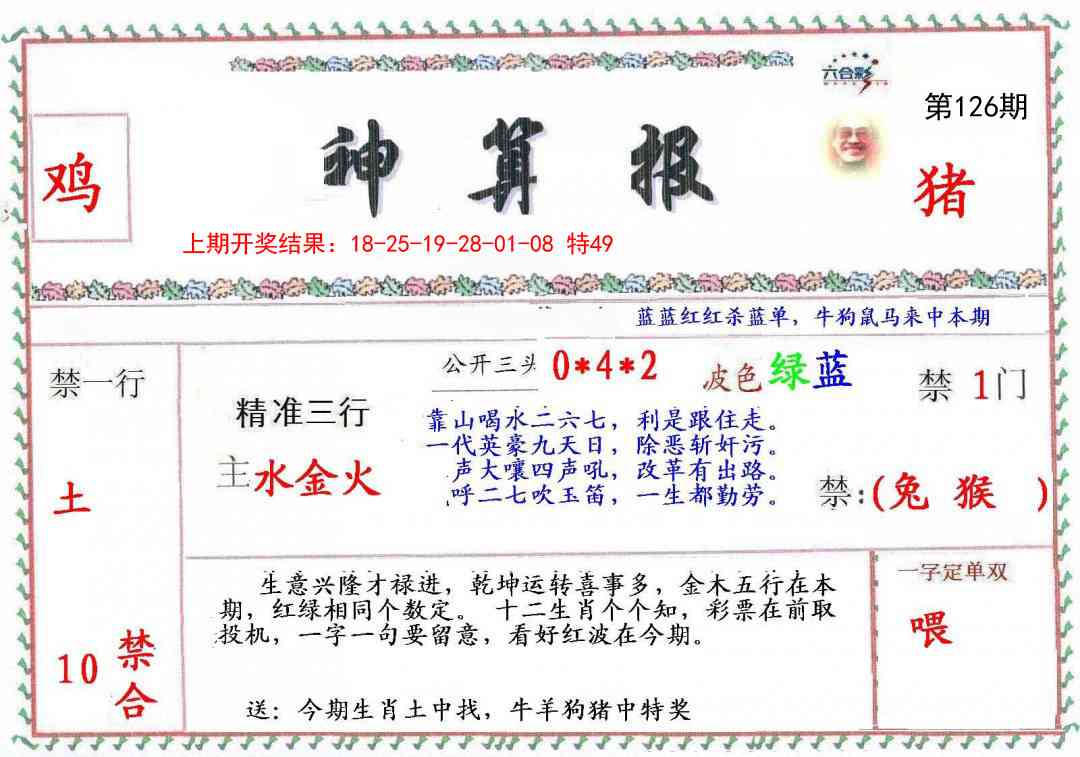 六合彩
第126期
鸡
神算报
猪
上期开奖结果：18-25-19-28-01-08 特49
蓝蓝红红杀蓝单，牛狗鼠马来中本期
禁一行
公开三头 0*4*2
波色绿蓝
禁 1门
精准三行
靠山喝水二六七，利是跟住走。
一代英豪九天日，除恶斩奸污。
主水金火
声大嚷四声吼，改革有出路。
呼二七吹玉笛，一生都勤劳。
土
禁:(兔 猴 )
生意兴隆才禄进，乾坤运转喜事多，金木五行在本
期，红绿相同个数定。 十二生肖个个知，彩票在前取
投机，一字一句要留意，看好红波在今期。
一字定单双
喂
10 禁合
送：今期生肖土中找，牛羊狗猪中特奖